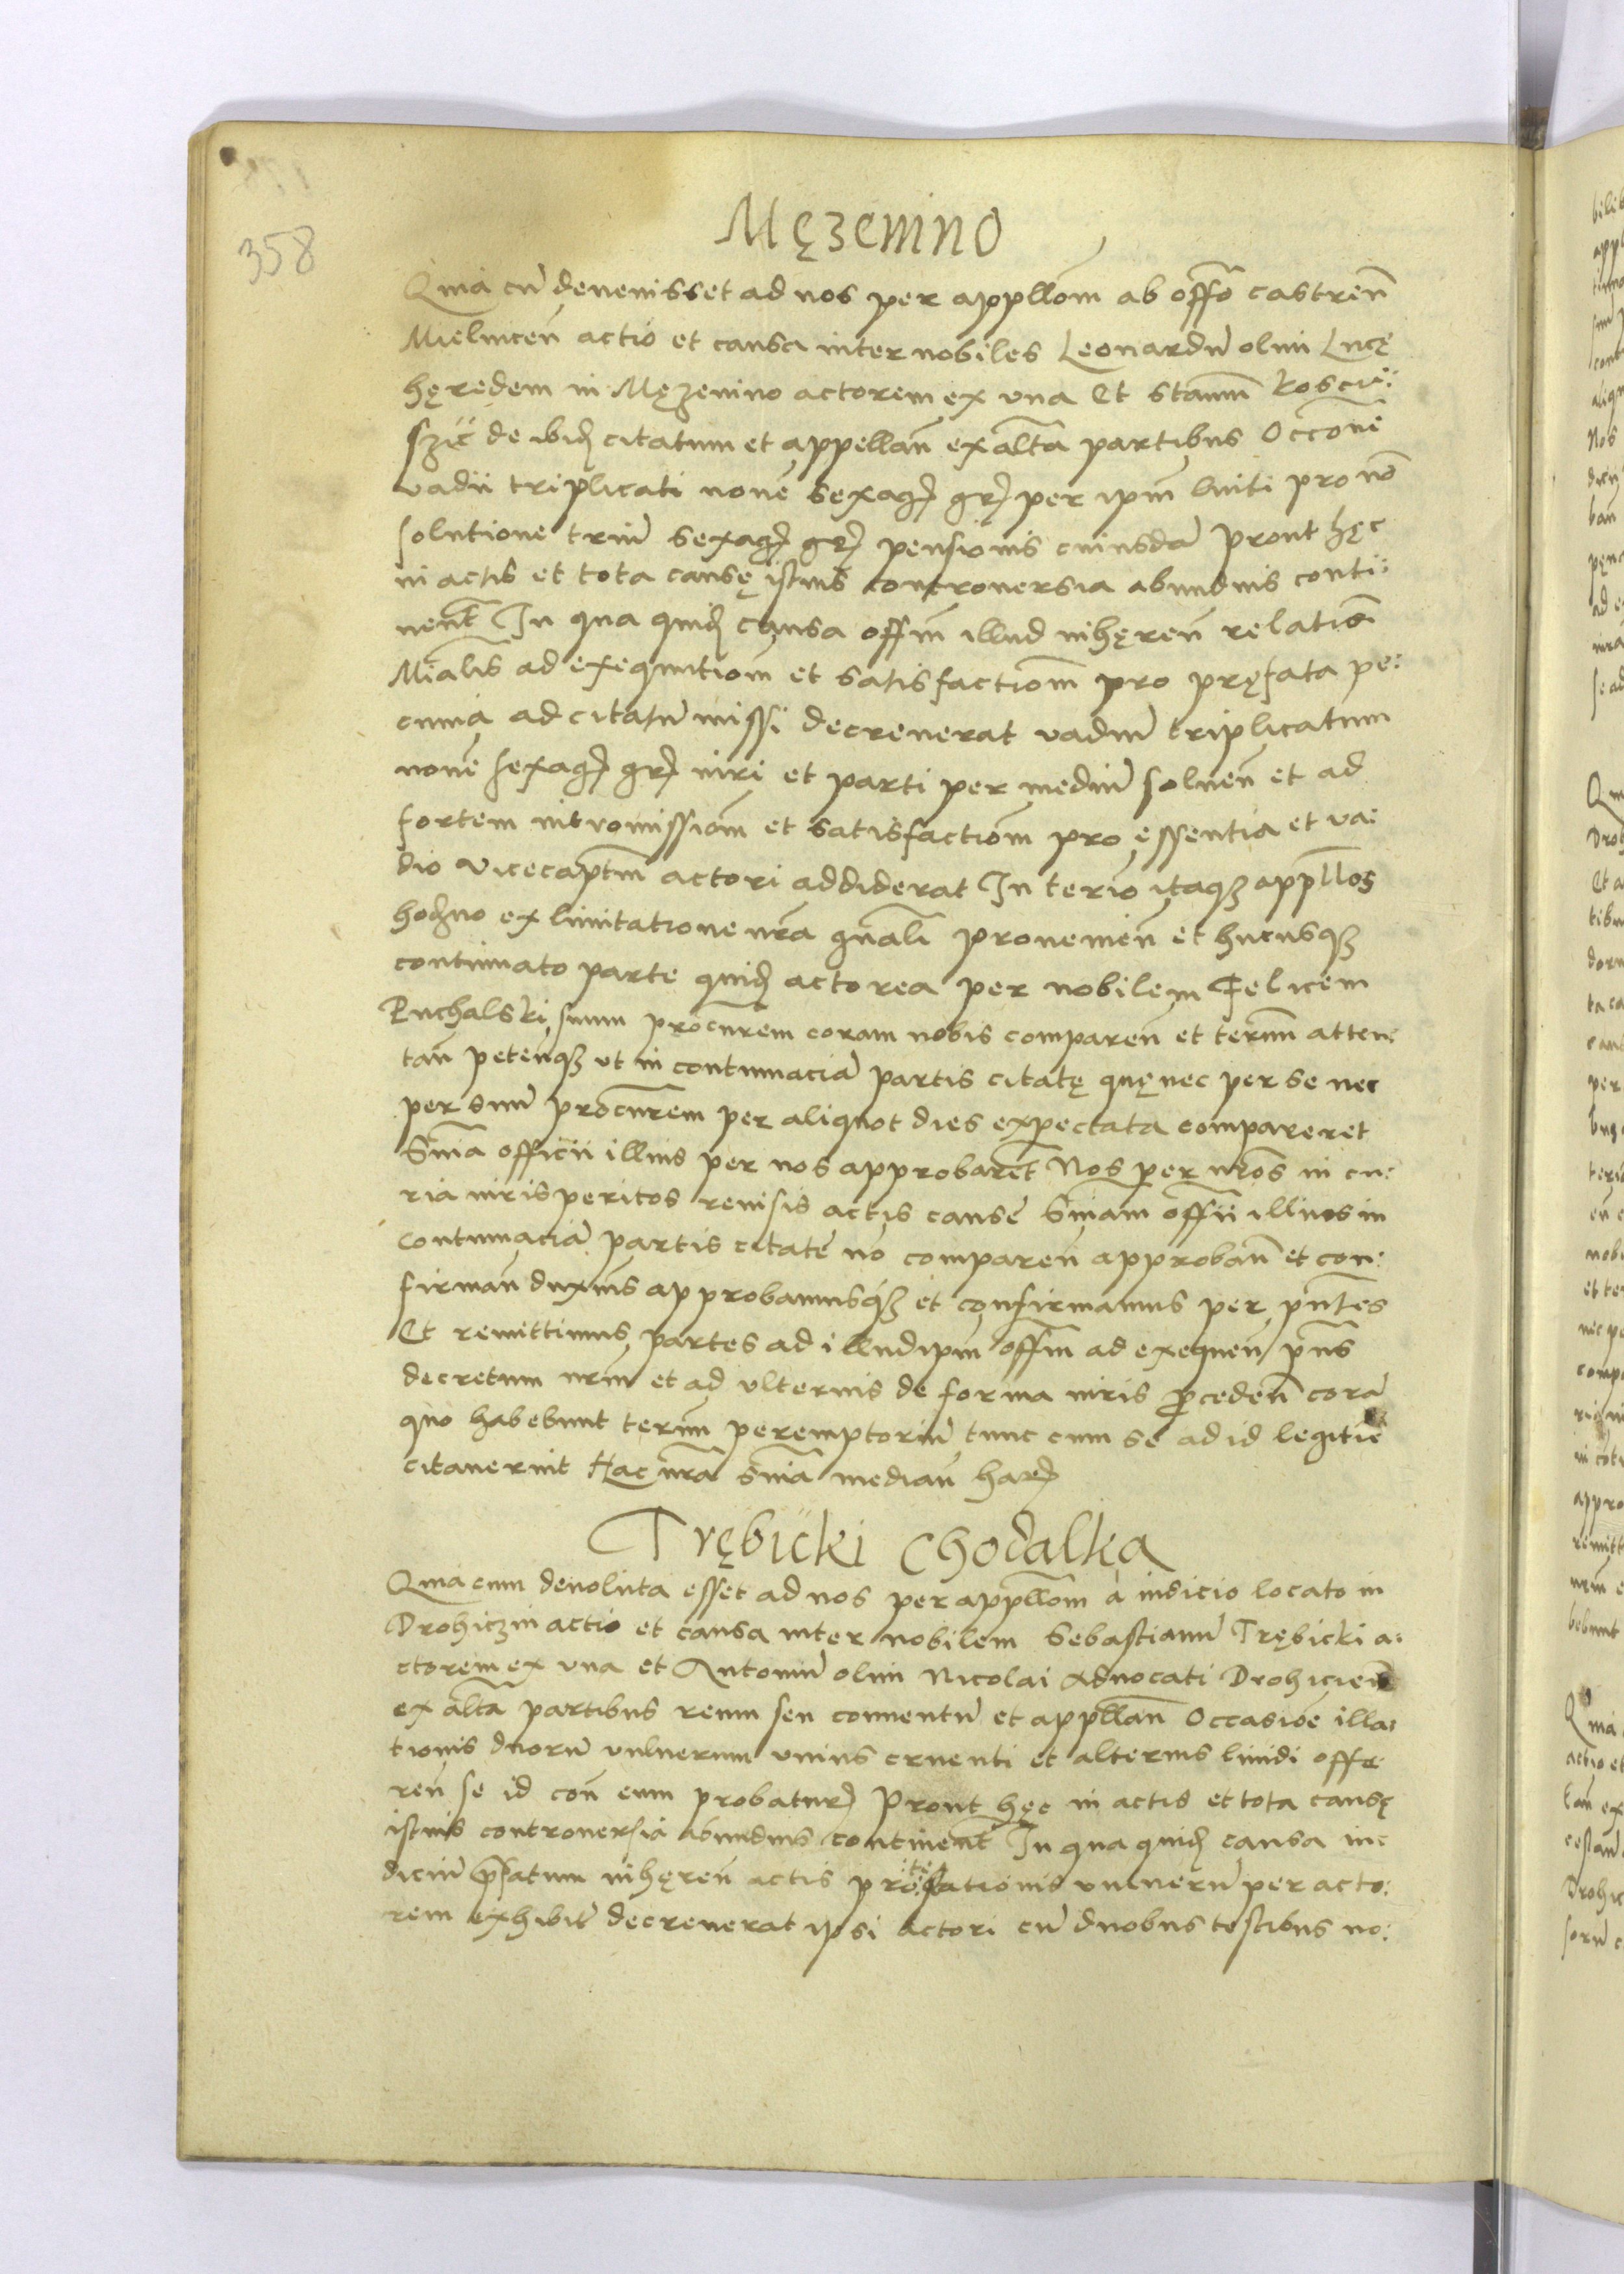 358
Męzenino
Quia cũ devenisset ad nos per appllom̃ ab offo castren̄
Mielnicen̄ actio et causa inter nobiles Leonardũ olim Lucę
hęredem in Męzenino actorem ex una Et Stanm̃ Koscie:
szic de ibid citatum et appellan̄ ex alta partibus Occone
vadii triplicati nove sexag gr per ipm̃ luiti pro nõ
solutione triũ sexag gr pensionis cuiusdã Prout hęc
in actis et tota causę istius controversia abundius conti:
nent In qua quid causa offm̃ illud inhęren̄ relatiõi
Mialis ad exequutiom̃ et satisfactiom̃ pro pręfata pe:
cunia ad citatũ missi decreverat vadiũ triplicatum
nove sexag gr iuri et parti per mediũ solven̄ et ad
fortem intromissiom̃ et satisfactiom̃ pro essentia et va:
dio vicecaptm̃ actori addiderat In termo itaq appllos
hodierno ex limitatione nrã gnali provenien̄ et hucusq
continuato parte quid actorea per nobilem Felicem
Ruchalski suum procurem coram nobis comparen̄ et termm̃ atten:
tan̄ peten̄q ut in contumaciã partis citatę quę nec per se nec
per suũ procurem per aliquot dies expectata compareret
Snia officii illius per nos approbaret Nos per nros in cu:
ria iuris peritos revisis actis cause Sniam offii illius in
contumaciã partis citate nõ comparen̄ approban̄ et con:
firman̄ duxim̃s approbamusq et confirmamus per pntes
Et remittimus partes ad illud ipm̃ offm̃ ad exequen̄ pns
decretum nrm̃ et ad ulterius de forma iuris proceden̄ corã
quo habebunt termm̃ peremptoriũ tunc cum se ad id legitie
citaverint Hac nrã Snia median̄ har
Trębicki Chodalka
Quia cum devoluta esset ad nos per appllom̃ a iudicio locato in
Drohiczin actio et causa inter nobilem Sebastianũ Trębicki a:
ctorem ex una et Antoniũ olim Nicolai Advocati Drohicien̄
ex alta partibus reum seu conventũ et appllan̄ Occasioe illa:
tionis duorũ vulnerum unius cruenti et alterius lividi offe:
ren̄ se id con̄ eum probatur Prout hęc in actis et tota causę
istius controversia abundius continent In qua quid causa iu:
diciũ pfatum inhęren̄ actis protestationis vulnerũ per acto:
rem exhibite decreverat ipsi actori cũ duobus testibus no: